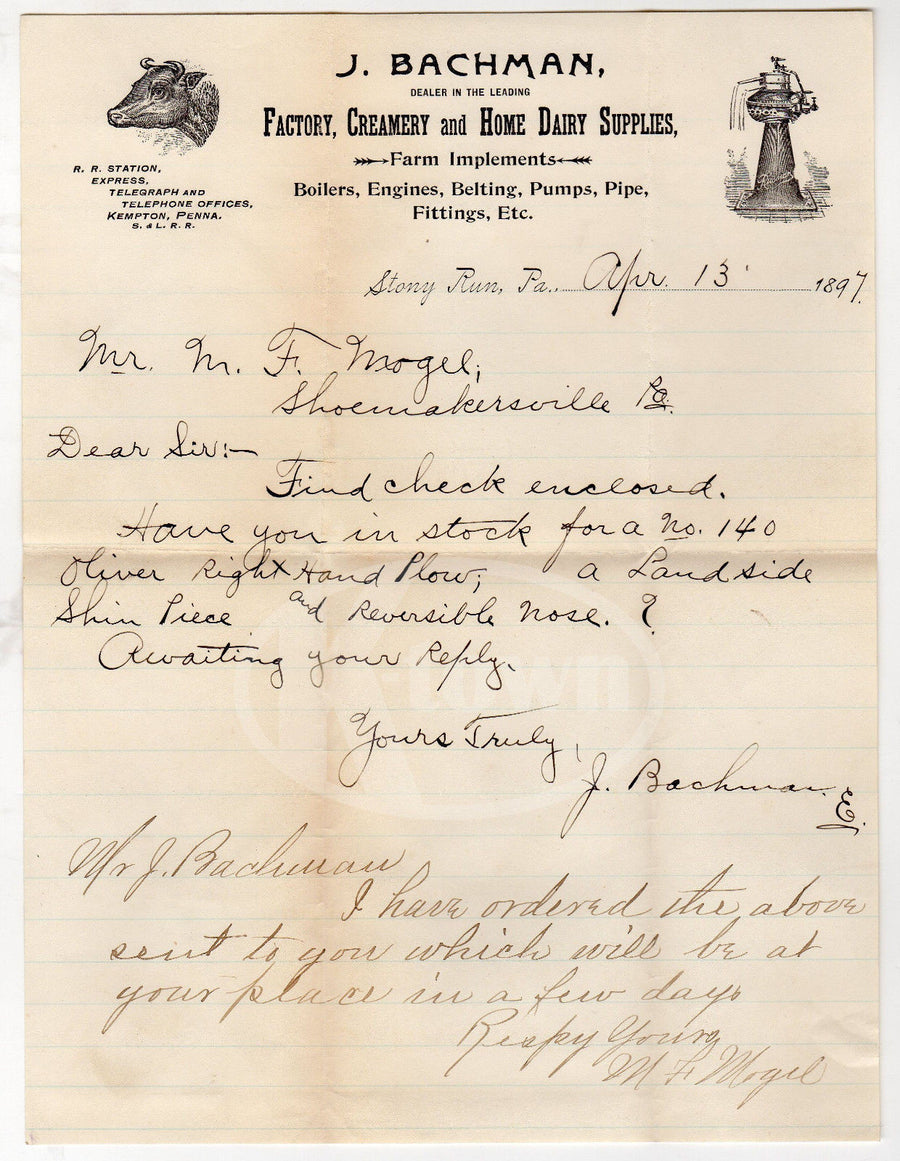 J. BACHMAN,
DEALER IN THE LEADING
FACTORY, CREAMERY and HOME DAIRY SUPPLIES,
Farm Implements
Boilers, Engines, Belting, Pumps, Pipe,
Fittings, Etc.
R. R. STATION,
EXPRESS,
TELEGRAPH AND
TELEPHONE OFFICES,
KEMPTON, PENNA.
S. & L. R. R.
Stony Run, Pa., Apr. 13 1897.
Mr. M. F. Mogel,
Shoemakersville Pa.
Dear Sir:—
Find check enclosed.
Have you in stock for a No. 140
Oliver Right Hand Plow; a Landside
Shin Piece and Reversible Nose. ?
Awaiting your Reply.
Yours Truly,
J. Bachman. E.
Mr J. Bachman
I have ordered the above
sent to you which will be at
your place in a few days
Respy Yours
M F Mogel
K-town